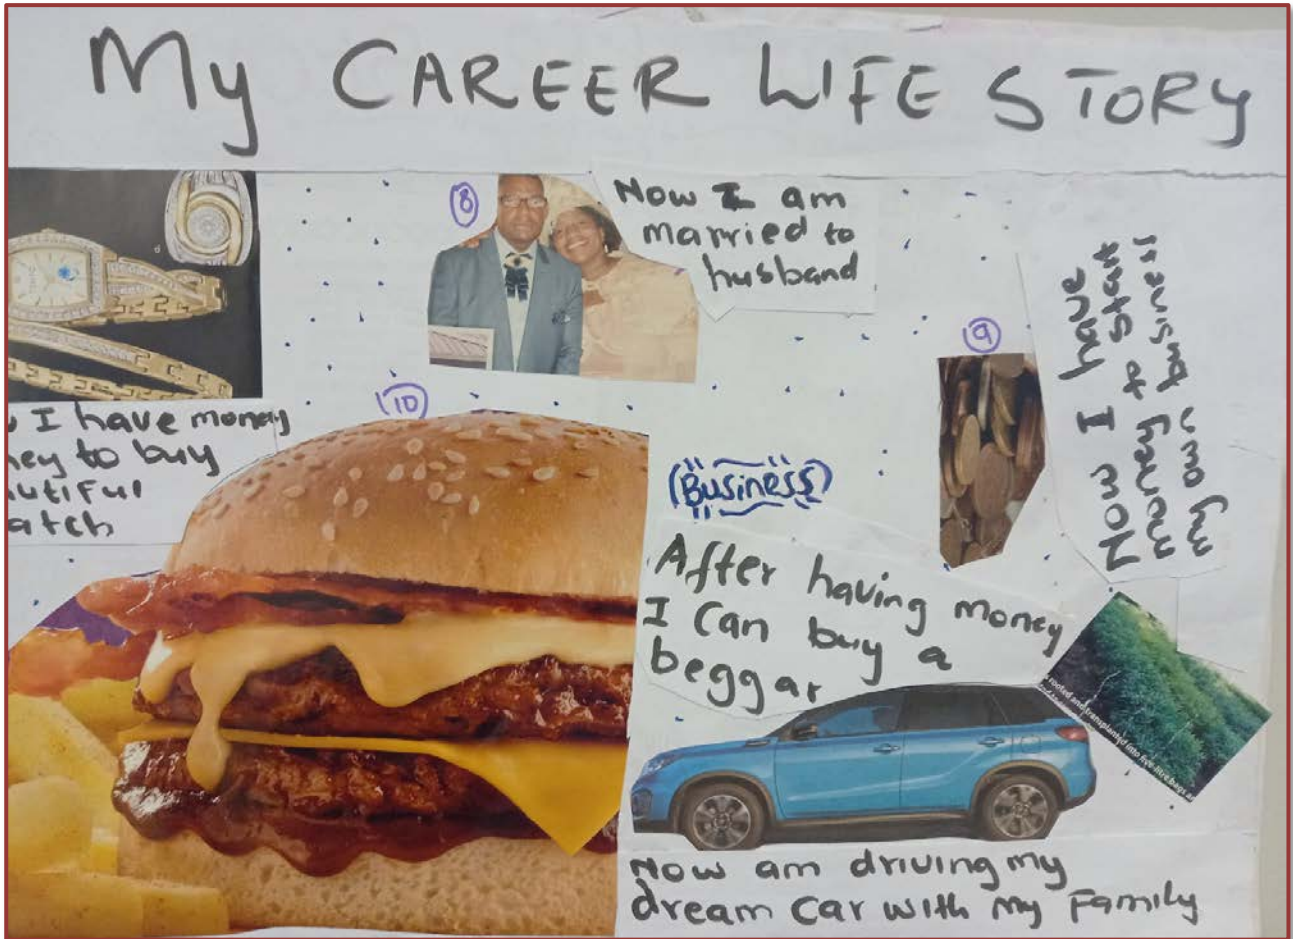 My CAREER LIFE STORY
8
Now I am
married to
husband
9
Now I have
money to start
my own business
I have money
to buy
10
(Business)
After having money
I can buy a
beggar
rooted and transplanted into five-litre bags
Now am driving my
dream car with my Family